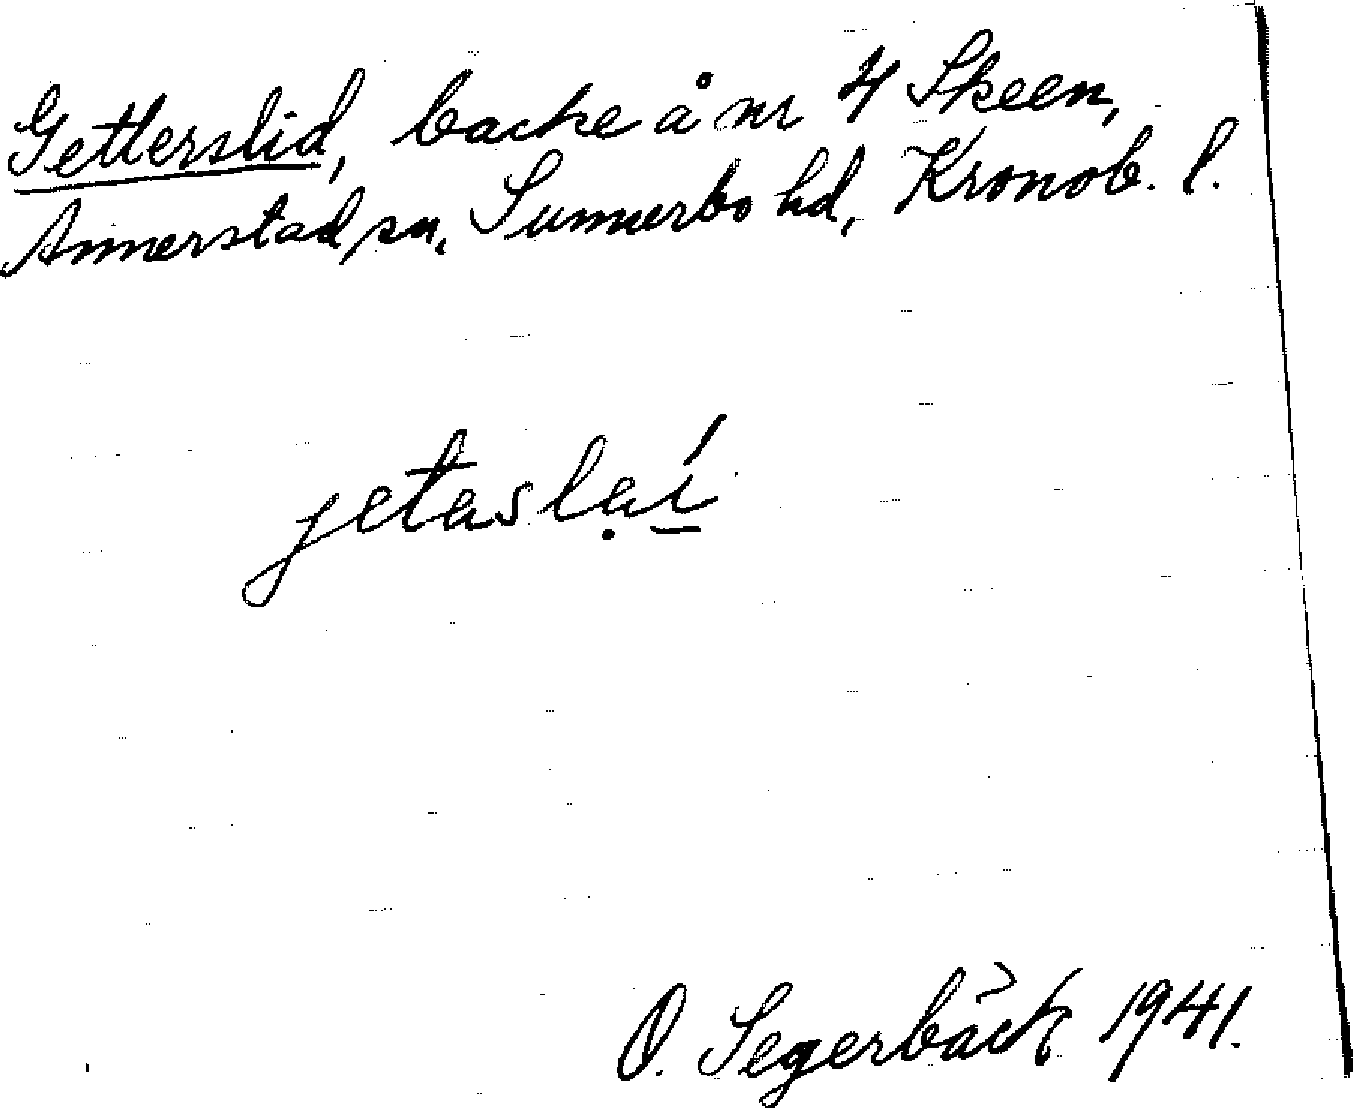 Getterslid, backe å nr 4 Skeen,
Annerstad sn, Sunnerbo hd, Kronob. l.
jetaslạí
O. Segerbäck 1941.